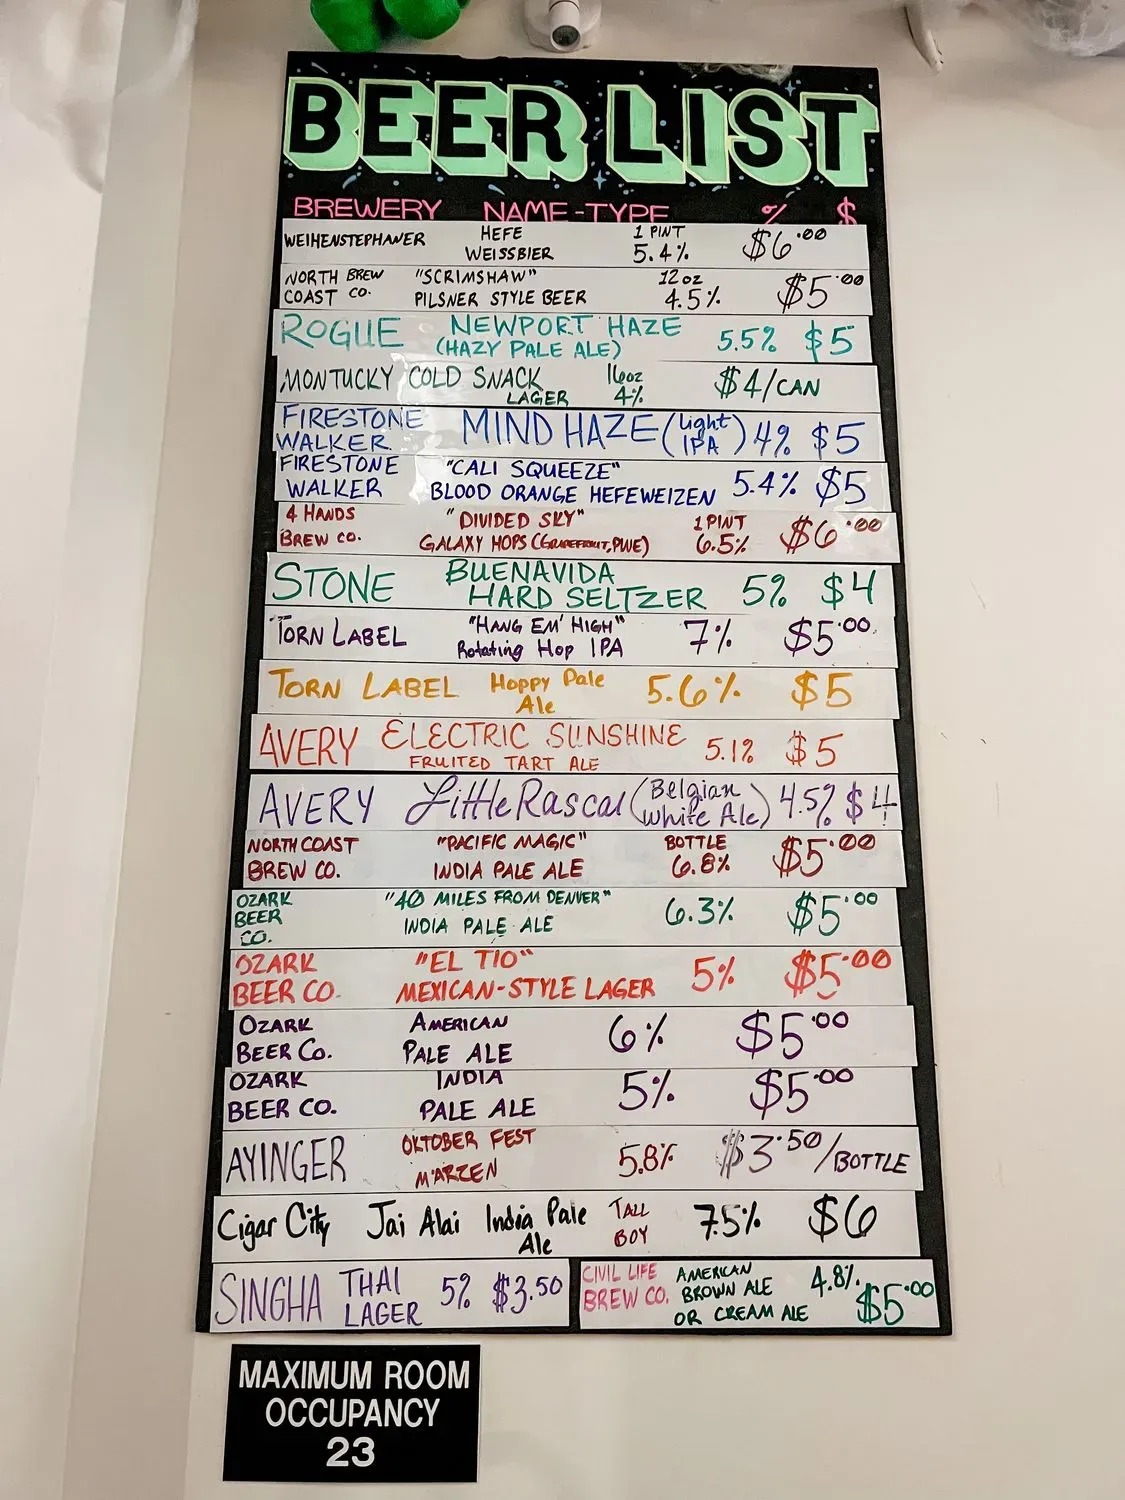 BEER LIST
BREWERY NAME-TYPE % $
WEIHENSTEPHANER HEFE WEISSBIER 1 PINT 5.4% $6.00
NORTH COAST BREW CO. "SCRIMSHAW" PILSNER STYLE BEER 12oz 4.5% $5.00
ROGUE NEWPORT HAZE (HAZY PALE ALE) 5.5% $5
MONTUCKY COLD SNACK LAGER 16oz 4% $4/CAN
FIRESTONE WALKER MIND HAZE (Light IPA) 4% $5
FIRESTONE WALKER "CALI SQUEEZE" BLOOD ORANGE HEFEWEIZEN 5.4% $5
4 HANDS BREW CO. "DIVIDED SKY" GALAXY HOPS (GRAPEFRUIT, PINE) 1 PINT 6.5% $6.00
STONE BUENAVIDA HARD SELTZER 5% $4
TORN LABEL "HANG EM' HIGH" Rotating Hop IPA 7% $5.00
TORN LABEL Hoppy Pale Ale 5.6% $5
AVERY ELECTRIC SUNSHINE FRUITED TART ALE 5.1% $5
AVERY Little Rascal (Belgian White Ale) 4.5% $4
NORTH COAST BREW CO. "PACIFIC MAGIC" INDIA PALE ALE BOTTLE 6.8% $5.00
OZARK BEER CO. "40 MILES FROM DENVER" INDIA PALE ALE 6.3% $5.00
OZARK BEER CO. "EL TIO" MEXICAN-STYLE LAGER 5% $5.00
OZARK BEER CO. AMERICAN PALE ALE 6% $5.00
OZARK BEER CO. INDIA PALE ALE 5% $5.00
AYINGER OKTOBER FEST MARZEN 5.8% $3.50/BOTTLE
Cigar City Jai Alai India Pale Ale TALL BOY 7.5% $6
SINGHA THAI LAGER 5% $3.50
CIVIL LIFE BREW CO. AMERICAN BROWN ALE OR CREAM ALE 4.8% $5.00
MAXIMUM ROOM
OCCUPANCY
23